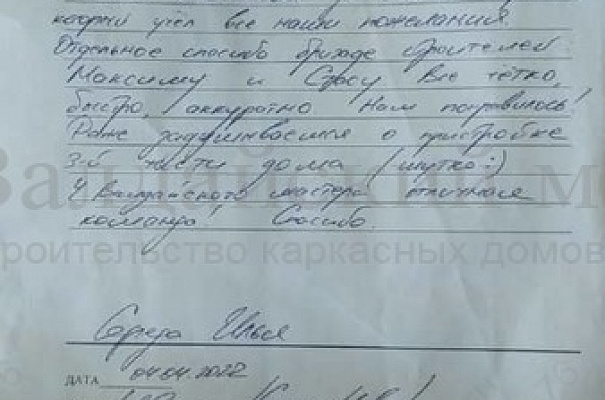 который учёл все наши пожелания.
Отдельное спасибо бригаде строителей
Максиму и Стасу Все чётко,
быстро, аккуратно. Нам понравилось!
Даже задумываемся о пристройке
3-й части дома (шутка:)
У Валдайского мастера отличная
команда! Спасибо.
Валдайский м
роительство каркасных домов
Илья
ДАТА 04.04.2022